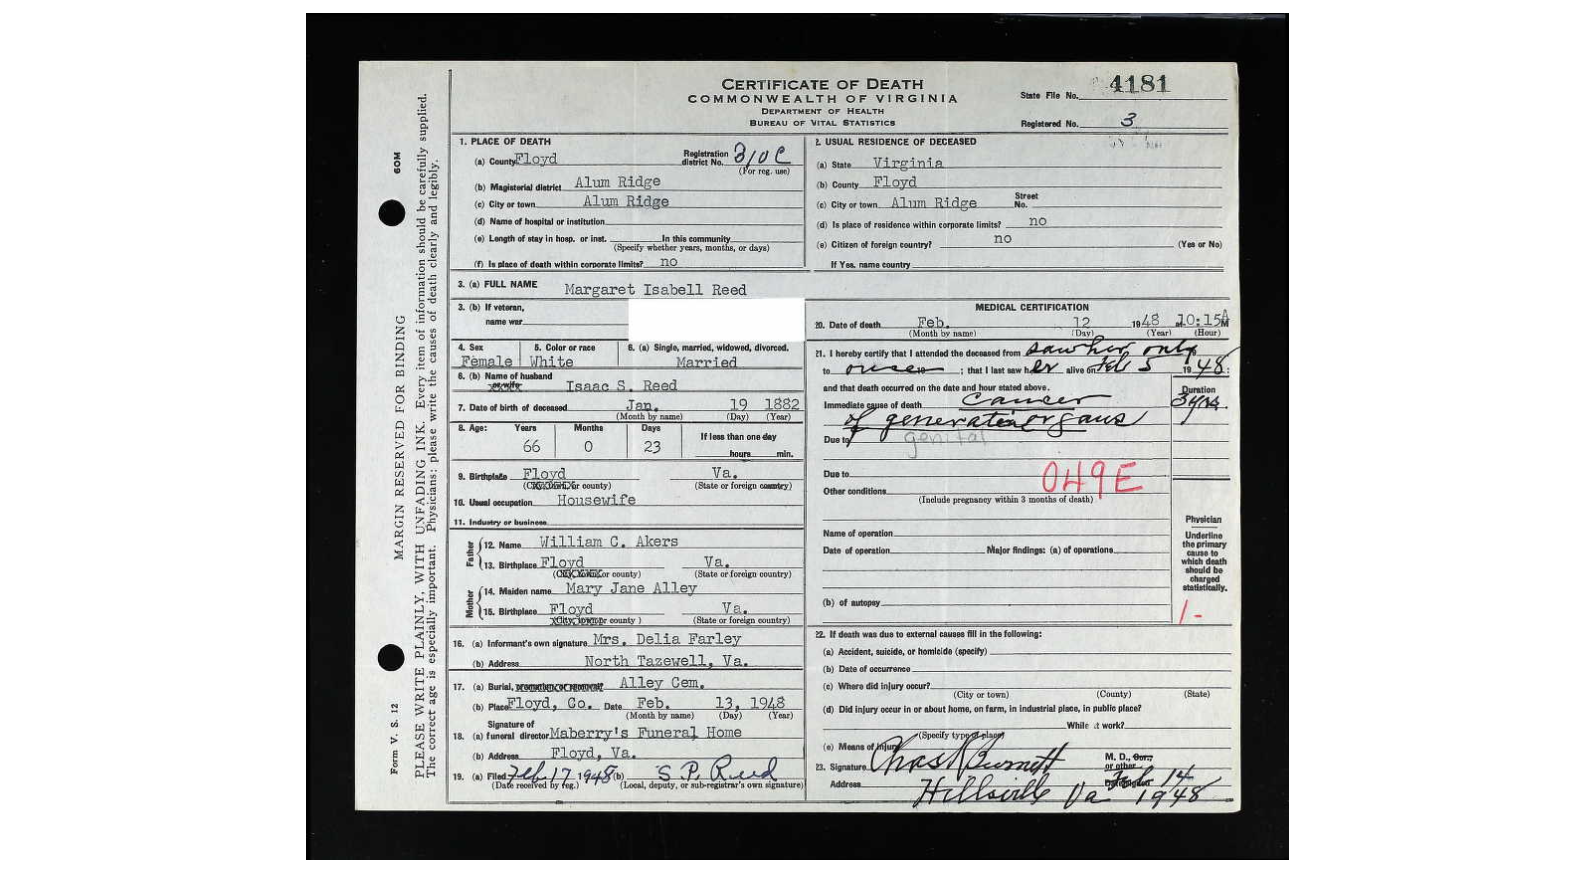 CERTIFICATE OF DEATH
COMMONWEALTH OF VIRGINIA
DEPARTMENT OF HEALTH
BUREAU OF VITAL STATISTICS
State File No. 4181
Registered No. 3
MARGIN RESERVED FOR BINDING 60M
PLEASE WRITE PLAINLY, WITH UNFADING INK. Every item of information should be carefully supplied.
The correct age is especially important. Physicians: please write the causes of death clearly and legibly.
Form V. S. 12
1. PLACE OF DEATH
(a) County Floyd Registration district No. 310C
(For reg. use)
(b) Magisterial district Alum Ridge
(c) City or town Alum Ridge
(d) Name of hospital or institution
(e) Length of stay in hosp. or inst. In this community
(Specify whether years, months, or days)
(f) Is place of death within corporate limits? no
2. USUAL RESIDENCE OF DECEASED
(a) State Virginia
(b) County Floyd
(c) City or town Alum Ridge Street No.
(d) Is place of residence within corporate limits? no
(e) Citizen of foreign country? no (Yes or No)
If Yes, name country
3. (a) FULL NAME Margaret Isabell Reed
3. (b) If veteran,
name war
4. Sex 5. Color or race 6. (a) Single, married, widowed, divorced.
Female White Married
6. (b) Name of husband
or wife Isaac S. Reed
7. Date of birth of deceased Jan. 19 1882
(Month by name) (Day) (Year)
8. Age: Years Months Days If less than one day
66 0 23 hours min.
9. Birthplace Floyd Va.
(City, town, or county) (State or foreign country)
10. Usual occupation Housewife
11. Industry or business
Father
12. Name William C. Akers
13. Birthplace Floyd Va.
(City, town, or county) (State or foreign country)
Mother
14. Maiden name Mary Jane Alley
15. Birthplace Floyd Va.
(City, town or county) (State or foreign country)
16. (a) Informant's own signature Mrs. Delia Farley
(b) Address North Tazewell, Va.
17. (a) Burial, cremation or removal? Alley Cem.
(b) Place Floyd, Co. Date Feb. 13, 1948
(Month by name) (Day) (Year)
Signature of
18. (a) funeral director Maberry's Funeral Home
(b) Address Floyd, Va.
19. (a) Filed Feb. 17, 1948 (b) S. P. Reed
(Date received by reg.) (Local, deputy, or sub-registrar's own signature)
MEDICAL CERTIFICATION
20. Date of death Feb. 12 1948 at 10:15 A M
(Month by name) (Day) (Year) (Hour)
21. I hereby certify that I attended the deceased from saw her only
to once 19 ; that I last saw her alive on Feb 5 1948;
and that death occurred on the date and hour stated above. Duration
Immediate cause of death cancer 3 yrs
of generative organs
Due to genital
Due to 049E
Other conditions
(Include pregnancy within 3 months of death)
Name of operation
Date of operation Major findings: (a) of operations
(b) of autopsy
Physician
Underline
the primary
cause to
which death
should be
charged
statistically.
1-
22. If death was due to external causes fill in the following:
(a) Accident, suicide, or homicide (specify)
(b) Date of occurrence
(c) Where did injury occur?
(City or town) (County) (State)
(d) Did injury occur in or about home, on farm, in industrial place, in public place?
While at work?
(Specify type of place)
(e) Means of injury
23. Signature Chas N Burnett M. D., Cor.,
or other
Address Hillsville Va Feb 14
1948